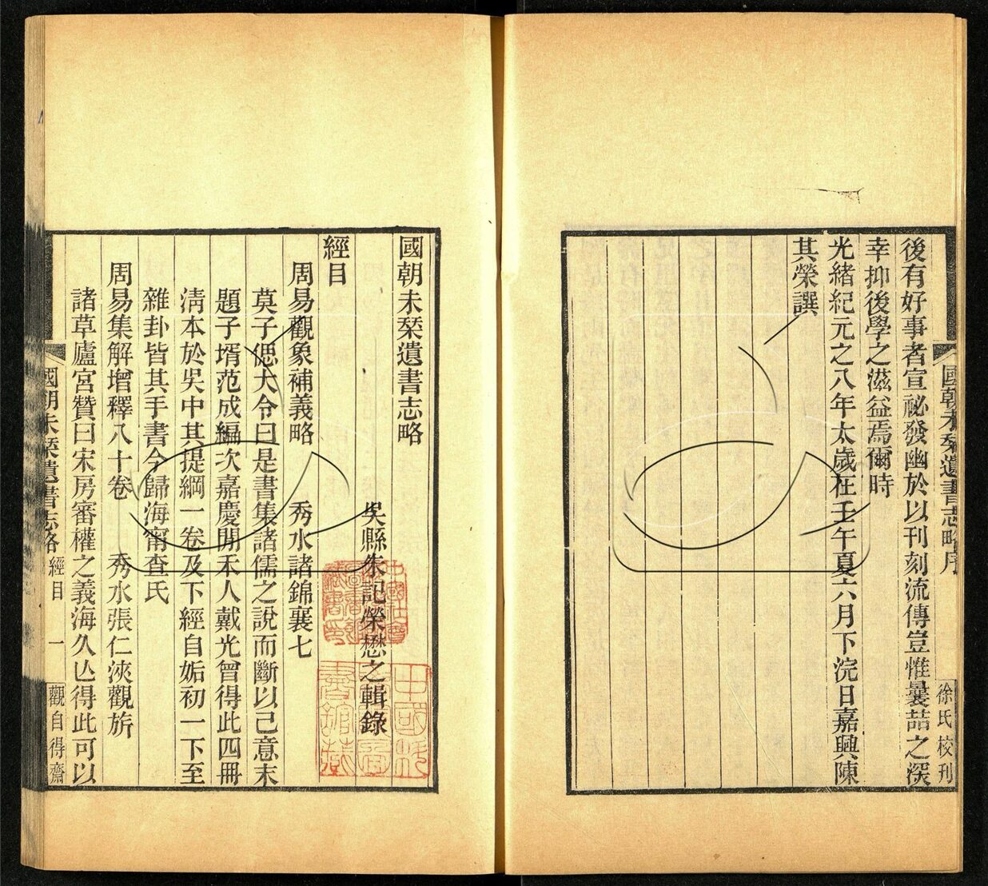 後有好事者宣祕發幽於以刊刻流傳豈惟曩喆之深
幸抑後學之滋益焉爾時
光緒紀元之八年太歲在壬午夏六月下浣日嘉興陳
其榮譔
國朝未栞遺書志略序
徐氏校刊
國朝未栞遺書志略
吳縣朱記榮懋之輯錄
經目
周易觀象補義略 秀水諸錦襄七
莫子偲大令曰是書集諸儒之說而斷以己意末
題子壻范成編次嘉慶閒禾人戴光曾得此四冊
淸本於吳中其提綱一卷及下經自姤初一下至
雜卦皆其手書今歸海甯查氏
周易集解增釋八十卷 秀水張仁浹觀旂
諸草廬宮贊曰宋房審權之義海久亾得此可以
國朝未栞遺書志略 經目 一 觀自得齋